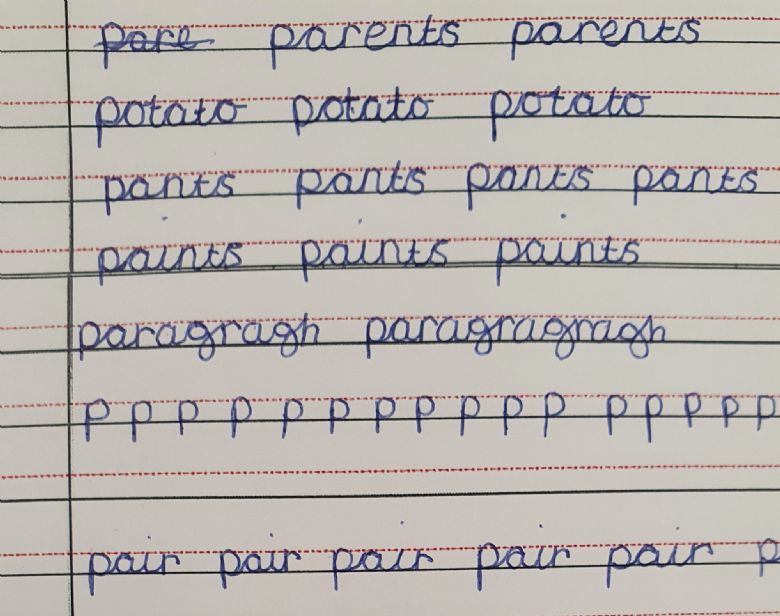 pare parents parents
potato potato potato
pants pants pants pants
paints paints paints
paragragh paragragragh
p p p p p p p p p p p p p p p p
pair pair pair pair pair p